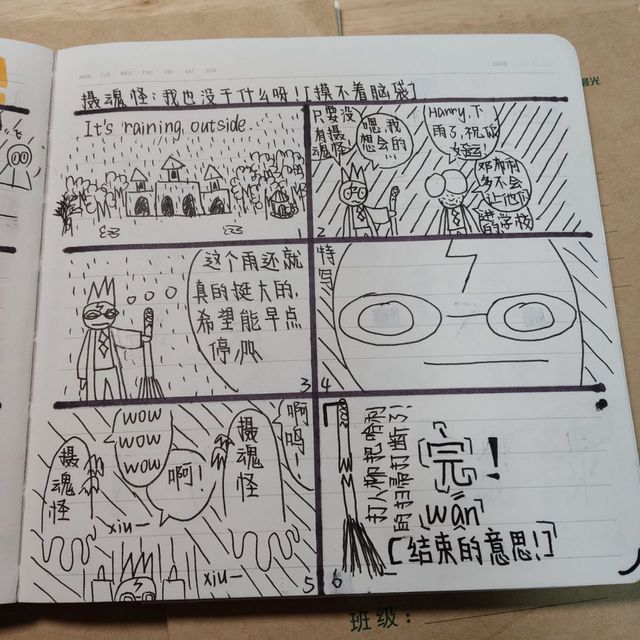 MON TUE WED THU FRI SAT SUN
DATE
晨光
摄魂怪:我也没干什么呀![摸不着脑袋]
It's raining outside.
1
只要没
有摄
魂怪
嗯,我
想会的!
Harry,下
雨了,祝你
好运!
邓布利
多不会
让他们
进学校
2
这个雨还就
真的挺大的,
希望能早点
停,
3
特写
4
wow
wow
wow
啊!
啊呜!
摄魂怪
摄魂怪
xiu—
xiu—
5
打人柳把哈利
的扫帚打断了!
完!
wán
[结束的意思!]
6
班级: